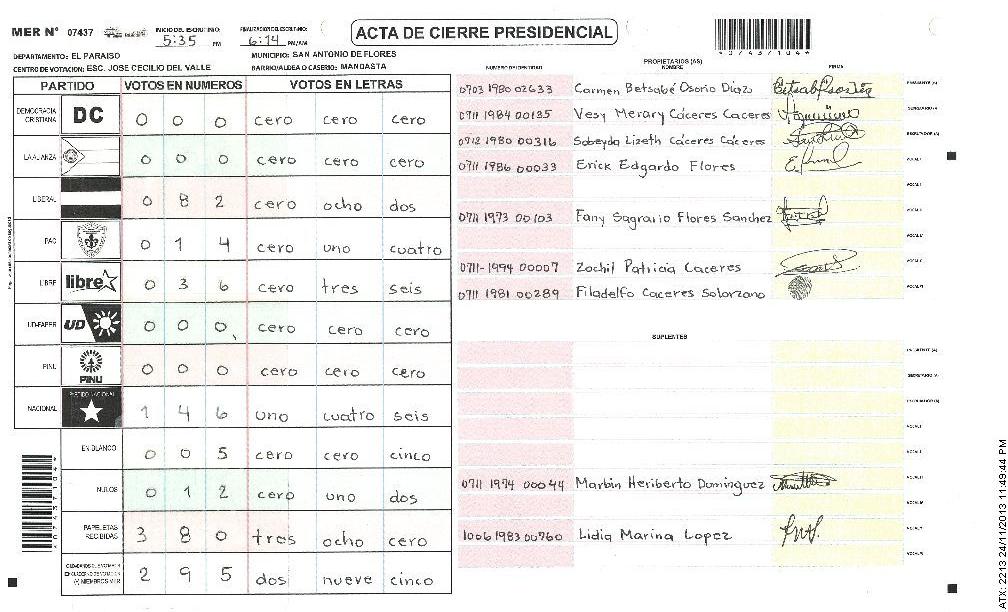 MER Nº 07437
INICIO DEL ESCRUTINIO: 5:35 PM
FINALIZACION DEL ESCRUTINIO: 6:14 PM/AM
ACTA DE CIERRE PRESIDENCIAL
DEPARTAMENTO: EL PARAISO
MUNICIPIO: SAN ANTONIO DE FLORES
CENTRO DE VOTACION: ESC. JOSE CECILIO DEL VALLE
BARRIO/ALDEA O CASERIO: MANDASTA
PARTIDO VOTOS EN NUMEROS VOTOS EN LETRAS
DEMOCRACIA CRISTIANA DC 0 0 0 cero cero cero
LA ALIANZA 0 0 0 cero cero cero
LIBERAL 0 8 2 cero ocho dos
PAC 0 1 4 cero uno cuatro
LIBRE libre 0 3 6 cero tres seis
UD-FAPER UD 0 0 0 cero cero cero
PINU PINU 0 0 0 cero cero cero
NACIONAL PARTIDO NACIONAL 1 4 6 uno cuatro seis
EN BLANCO 0 0 5 cero cero cinco
NULOS 0 1 2 cero uno dos
PAPELETAS RECIBIDAS 3 8 0 tres ocho cero
(+) MIEMBROS MER 2 9 5 dos nueve cinco
PROPIETARIOS (AS)
NUMERO DE IDENTIDAD NOMBRE FIRMA
0703 1980 02633 Carmen Betsabé Osorio Diaz
0711 1984 00135 Vesy Merary Cáceres Caceres
0712 1980 00316 Sobeyda Lizeth Cáceres Cáceres
0711 1986 00033 Erick Edgardo Flores
0711 1973 00103 Fany Sagrario Flores Sanchez
0711-1994 00007 Zochil Patricia Caceres
0711 1981 00289 Filadelfo Caceres Solorzano
SUPLENTES
0711 1974 00044 Marbin Heriberto Dominguez
1006 1983 00760 Lidia Marina Lopez
ATX: 2213 24/11/2013 11:49:44 PM